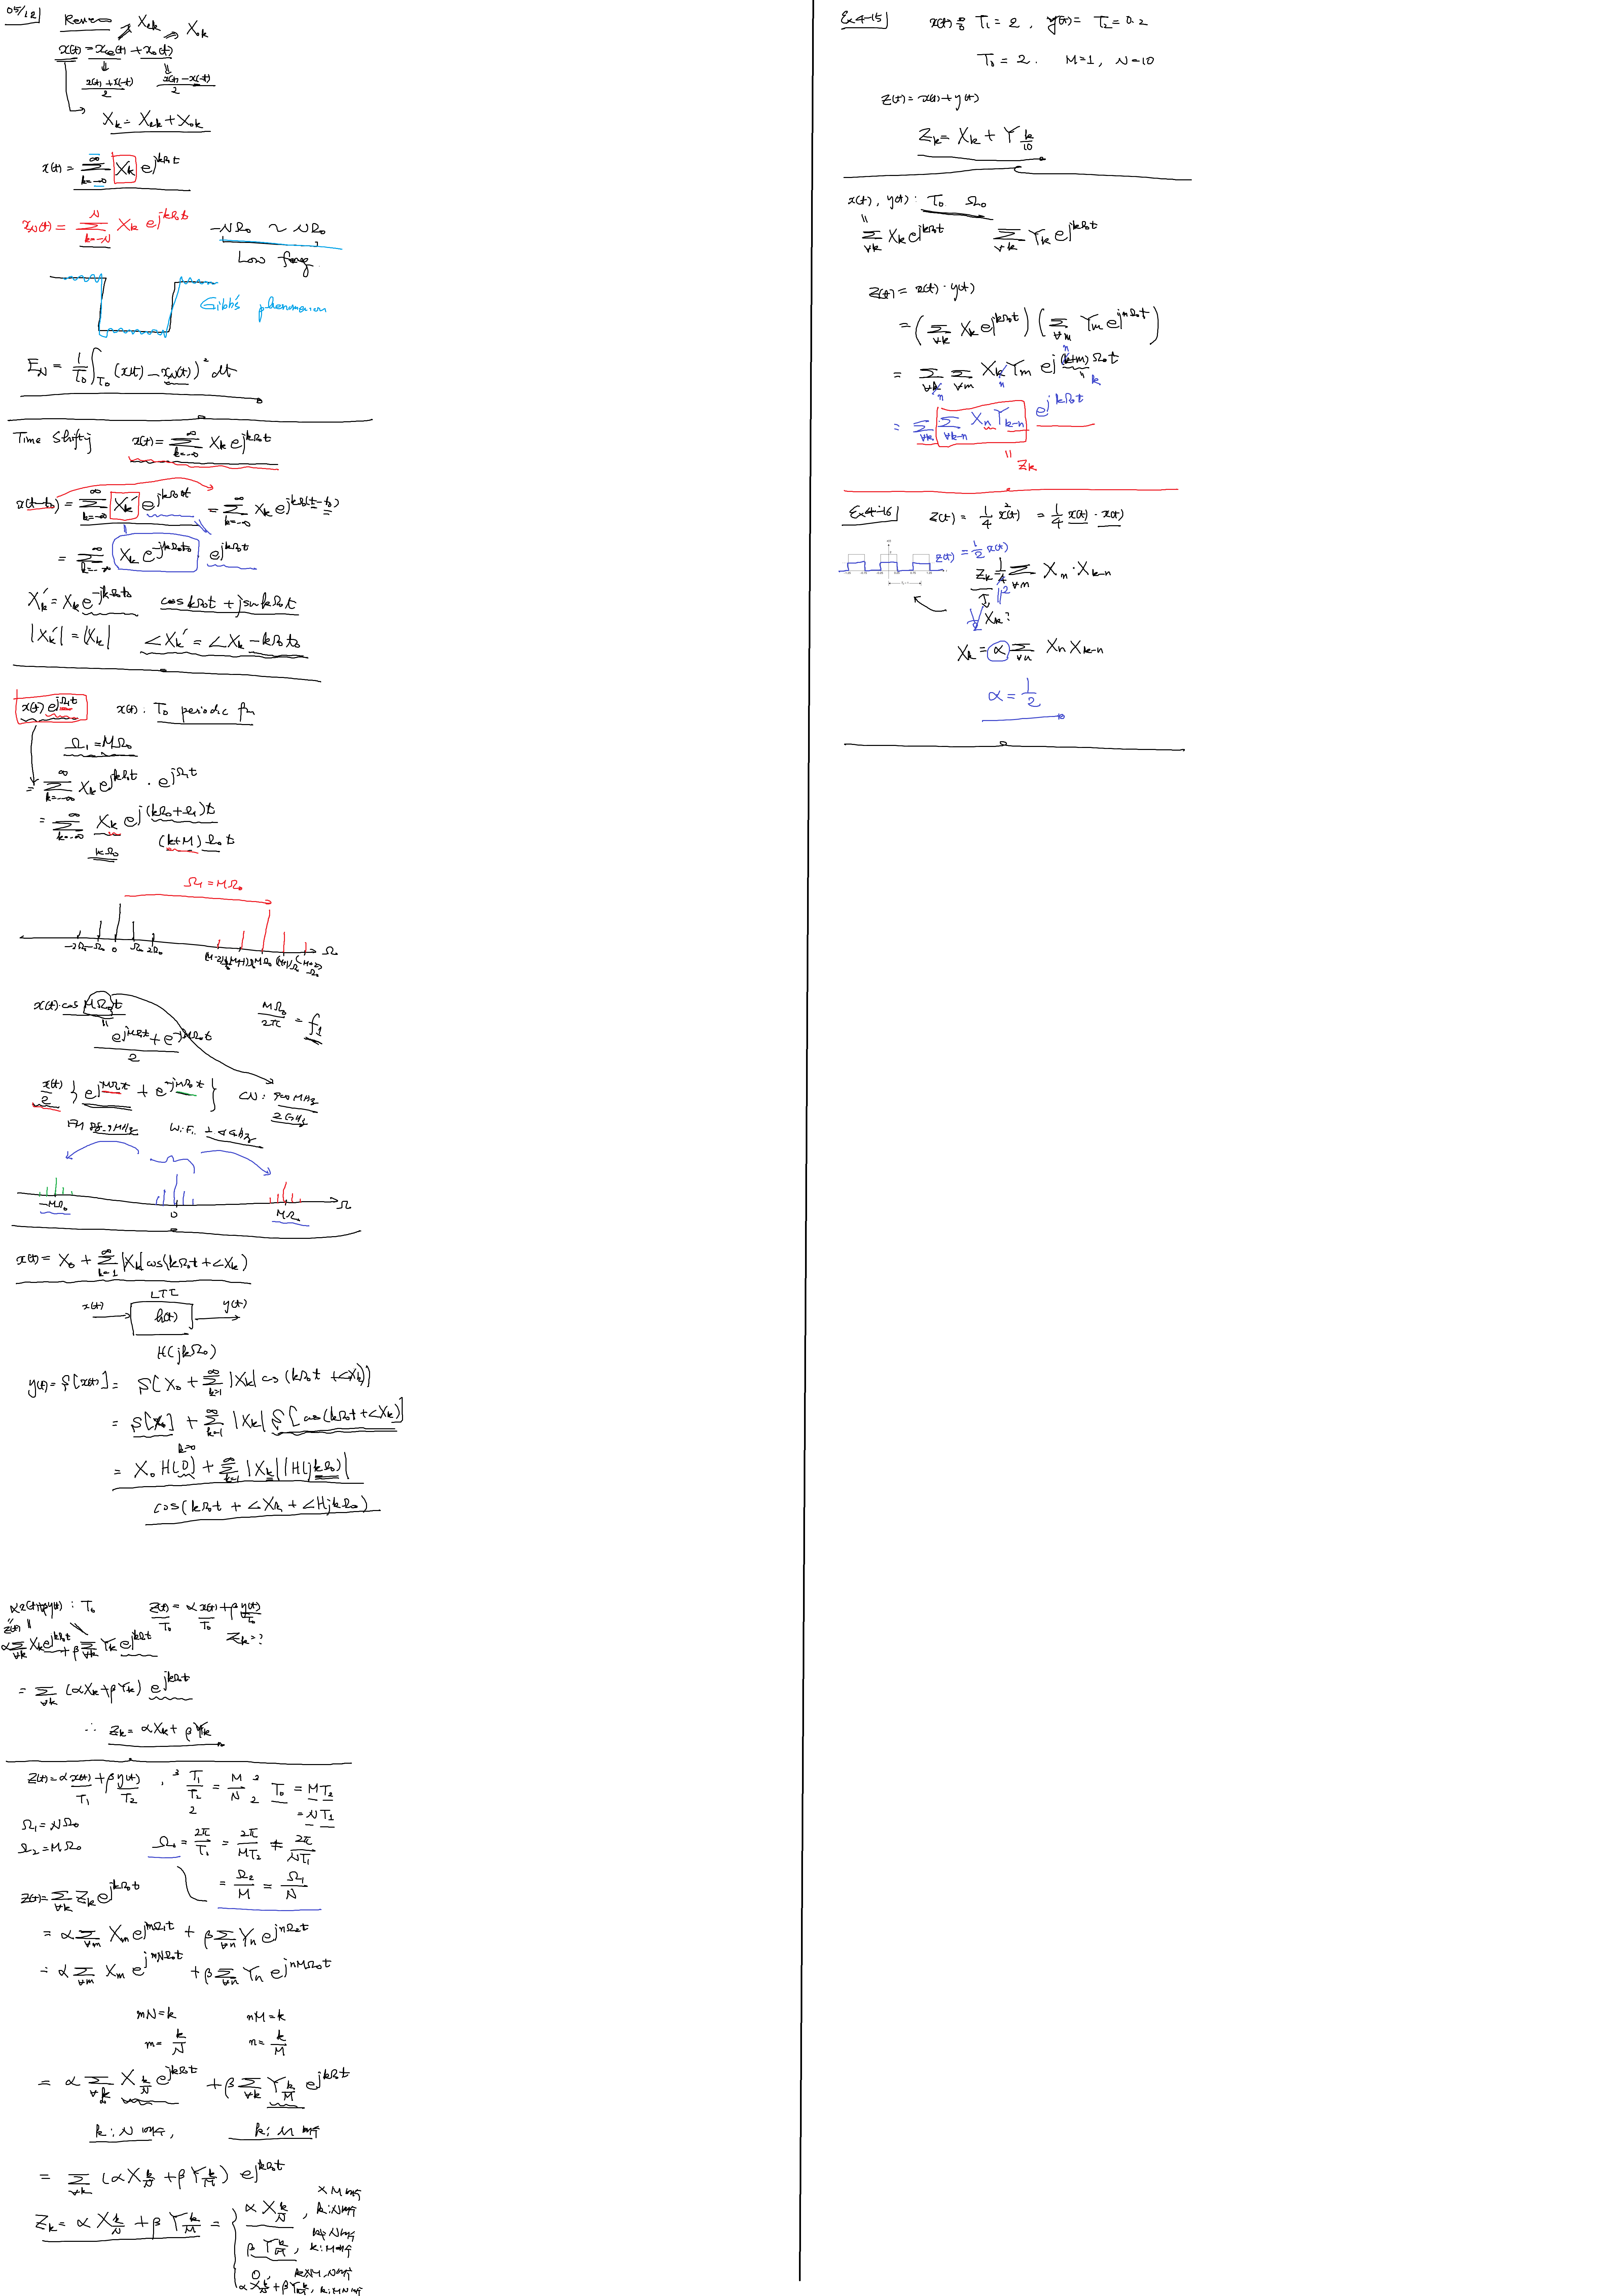 05/12
Review
Xek
Xok
x(t) = xe(t) + xo(t)
x(t)+x(-t)
2
x(t)-x(-t)
2
Xk = Xek + Xok
x(t) = ∞ Σ k=-∞ Xk e^jkΩ0t
xN(t) = N Σ k=-N Xk e^jkΩ0t
-NΩ0 ~ NΩ0
Low freq.
Gibb's phenomenon
EN = 1/T0 ∫T0 (x(t) - xN(t))² dt
Time Shifting
x(t) = ∞ Σ k=-∞ Xk e^jkΩ0t
x(t-t0) = ∞ Σ k=-∞ Xk' e^jkΩ0t = ∞ Σ k=-∞ Xk e^jkΩ0(t-t0)
= ∞ Σ k=-∞ Xk e^-jkΩ0t0 · e^jkΩ0t
Xk' = Xk e^-jkΩ0t0
coskΩ0t + jsinkΩ0t
|Xk'| = |Xk|
∠Xk' = ∠Xk - kΩ0t0
x(t) e^jΩ1t
x(t) : T0 periodic fn
Ω1 = MΩ0
= ∞ Σ k=-∞ Xk e^jkΩ0t · e^jΩ1t
= ∞ Σ k=-∞ Xk e^j(kΩ0+Ω1)t
kΩ0
(k+M)Ω0t
Ω1 = MΩ0
-2Ω0 -Ω0 0 Ω0 2Ω0
MΩ0
Ω
x(t)·cos MΩ0t
e^jMΩ0t + e^-jMΩ0t
2
MΩ0/2π = f1
x(t)/2 { e^jMΩ0t + e^-jMΩ0t }
900 MHz
2GHz
-MΩ0
0
MΩ0
Ω
x(t) = X0 + ∞ Σ k=1 |Xk| cos(kΩ0t + ∠Xk)
LTI
x(t)
h(t)
y(t)
H(jkΩ0)
y(t) = S[x(t)] = S[X0 + ∞ Σ k=1 |Xk| cos(kΩ0t + ∠Xk)]
= S[X0] + ∞ Σ k=1 |Xk| S[cos(kΩ0t + ∠Xk)]
k=0
= X0 H(0) + ∞ Σ k=1 |Xk| |H(jkΩ0)|
cos(kΩ0t + ∠Xk + ∠HjkΩ0)
αx(t)+βy(t) : T0
z(t) = αx(t) + βy(t)
T0 T0 T0
z(t)
Zk = ?
α Σ ∀k Xk e^jkΩ0t + β Σ ∀k Yk e^jkΩ0t
= Σ ∀k (αXk + βYk) e^jkΩ0t
∴ Zk = αXk + βYk
z(t) = αx(t) + βy(t)
T1 T2
T1/T2 = M/N
3 2 3 2
T0 = MT2
= NT1
Ω1 = NΩ0
Ω2 = MΩ0
Ω0 = 2π/T0 = 2π/MT2 = 2π/NT1
= Ω2/M = Ω1/N
z(t) = Σ ∀k Zk e^jkΩ0t
= α Σ ∀m Xm e^jmΩ1t + β Σ ∀n Yn e^jnΩ2t
= α Σ ∀m Xm e^jmNΩ0t + β Σ ∀n Yn e^jnMΩ0t
mN=k
nM=k
m= k/N
n= k/M
= α Σ ∀k X k/N e^jkΩ0t + β Σ ∀k Y k/M e^jkΩ0t
= Σ ∀k (αX k/N + βY k/M) e^jkΩ0t
Zk = αX k/N + βY k/M =
αX k/N
βY k/M
0
αX k/N + βY k/M
Ex4-15
x(t) : T1 = 2 , y(t) = T2 = 0.2
T0 = 2. M=1, N=10
z(t) = x(t) + y(t)
Zk = Xk + Y k/10
x(t), y(t) : T0 Ω0
Σ ∀k Xk e^jkΩ0t
Σ ∀k Yk e^jkΩ0t
z(t) = x(t) · y(t)
= (Σ ∀k Xk e^jkΩ0t) (Σ ∀m Ym e^jmΩ0t)
= Σ ∀k Σ ∀m Xk Ym e^j(k+m)Ω0t
n n n k
= Σ ∀k Σ ∀k-n Xn Yk-n e^jkΩ0t
Zk
Ex4-16
z(t) = 1/4 x²(t) = 1/4 x(t) · x(t)
z(t) = 1/2 x(t)
Zk 1/4 Σ ∀m Xn · Xk-n
1/2 Xk?
Xk = α Σ ∀n Xn Xk-n
α = 1/2